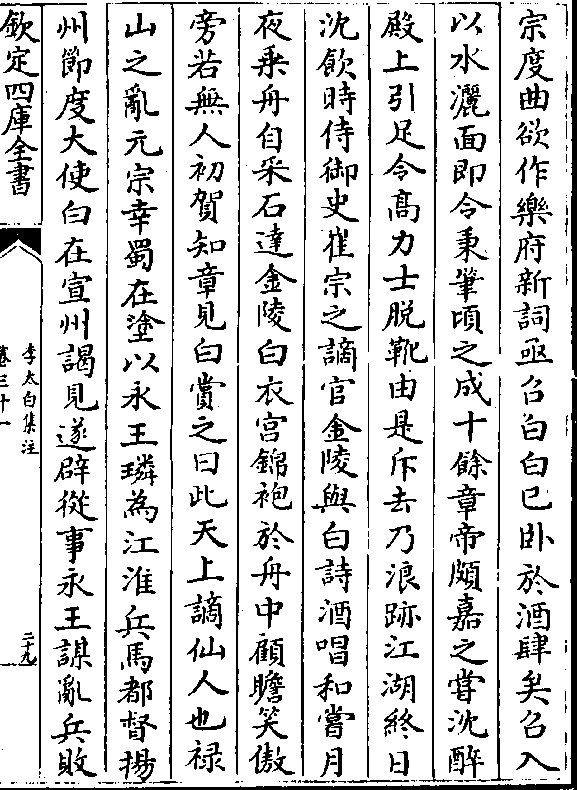 宗度曲欲作樂府新詞亟召白白已卧於酒肆矣召入
以水灑面即令秉筆頃之成十餘章帝頗嘉之嘗沈醉
殿上引足令髙力士脱靴由是斥去乃浪跡江湖終日
沈飲時侍御史崔宗之謫官金陵與白詩酒唱和嘗月
夜乗舟自采石達金陵白衣宫錦袍於舟中顧瞻笑傲
旁若無人初賀知章見白賞之曰此天上謫仙人也禄
山之亂元宗幸蜀在塗以永王璘為江淮兵馬都督揚
州節度大使白在宣州謁見遂辟從事永王謀亂兵敗
欽定四庫全書
李太白集注
卷三十一
二十九